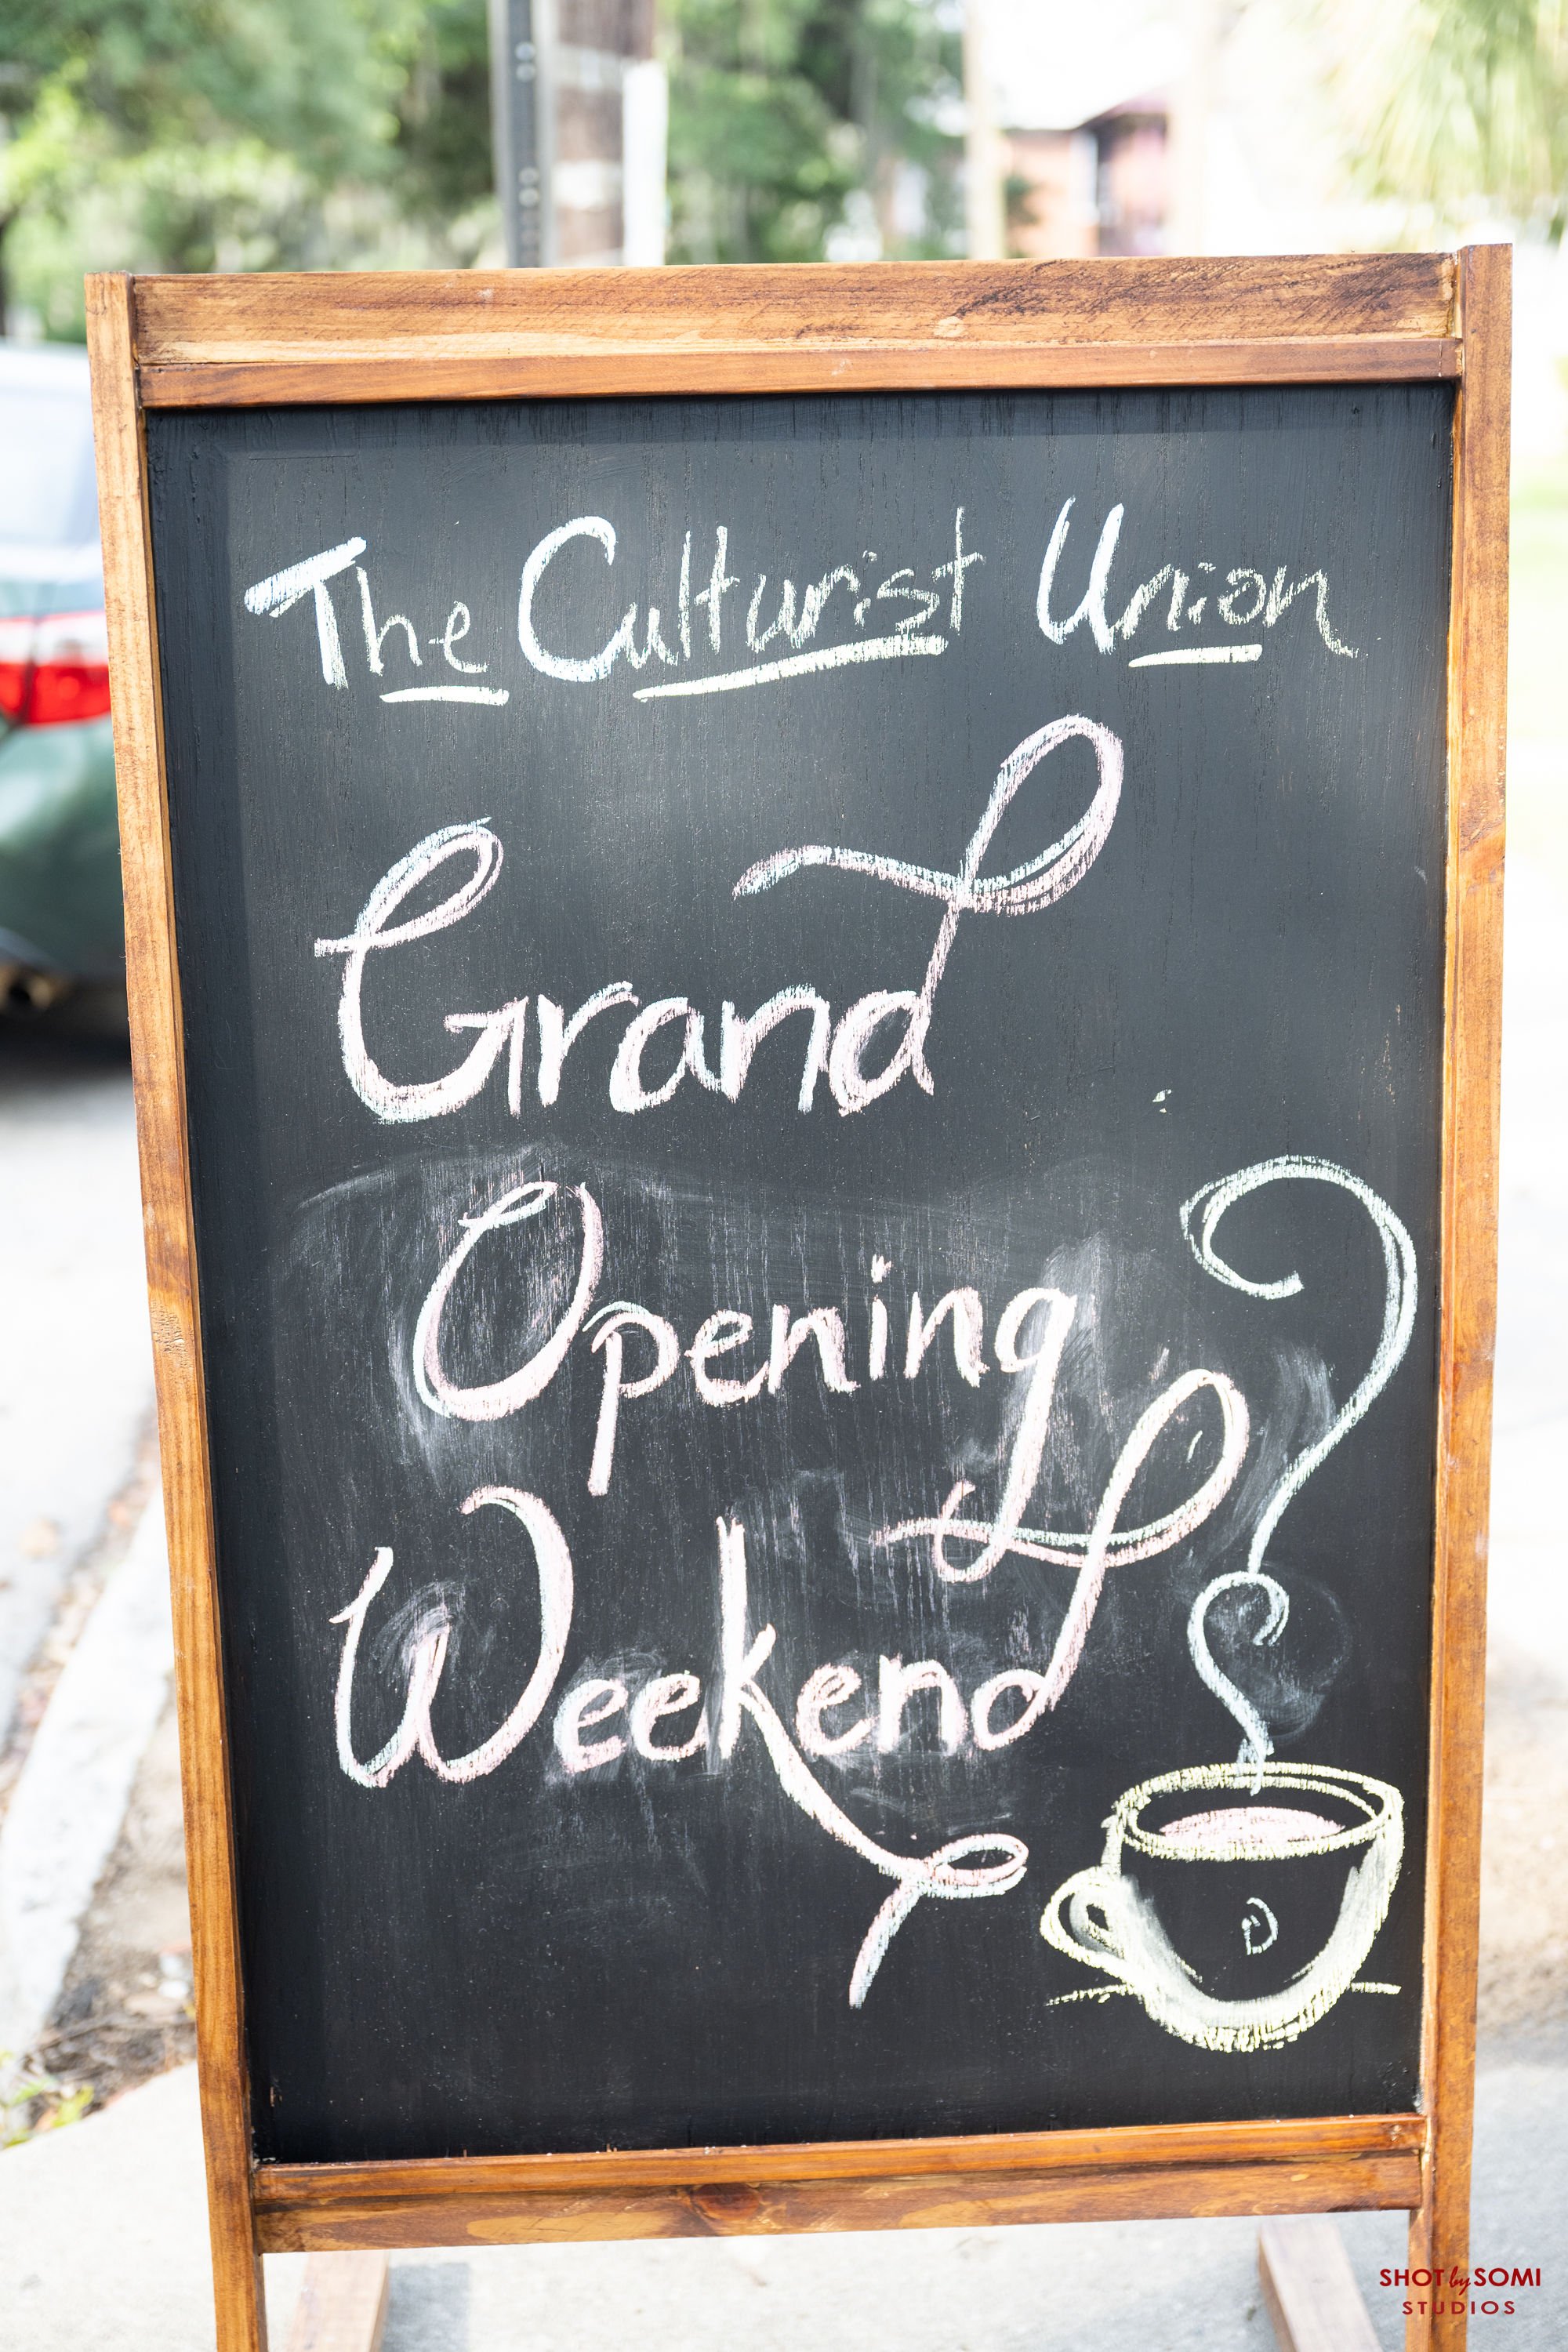 The Culturist Union
Grand
Opening
Weekend
SHOT by SOMI
STUDIOS